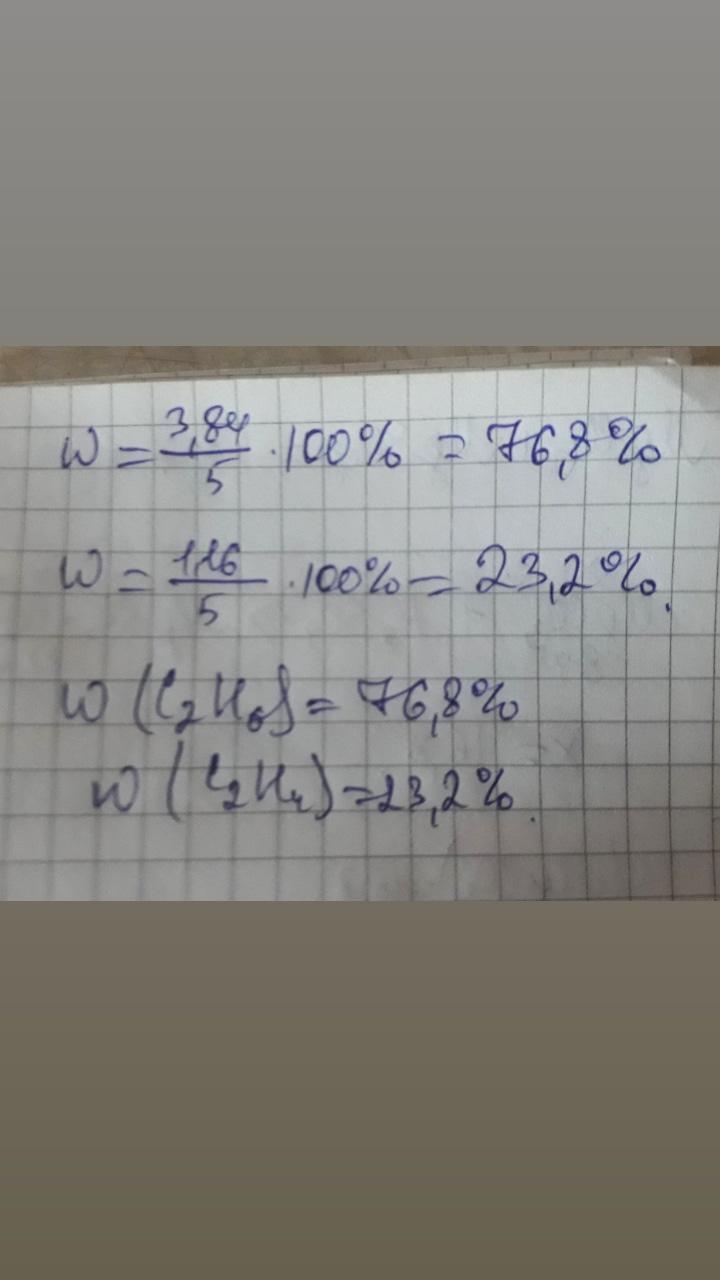 W = 3,84 / 5 · 100% = 76,8%
W = 1,16 / 5 · 100% = 23,2%.
W (C₂H₆) = 76,8%
W (C₂H₄) = 23,2%.